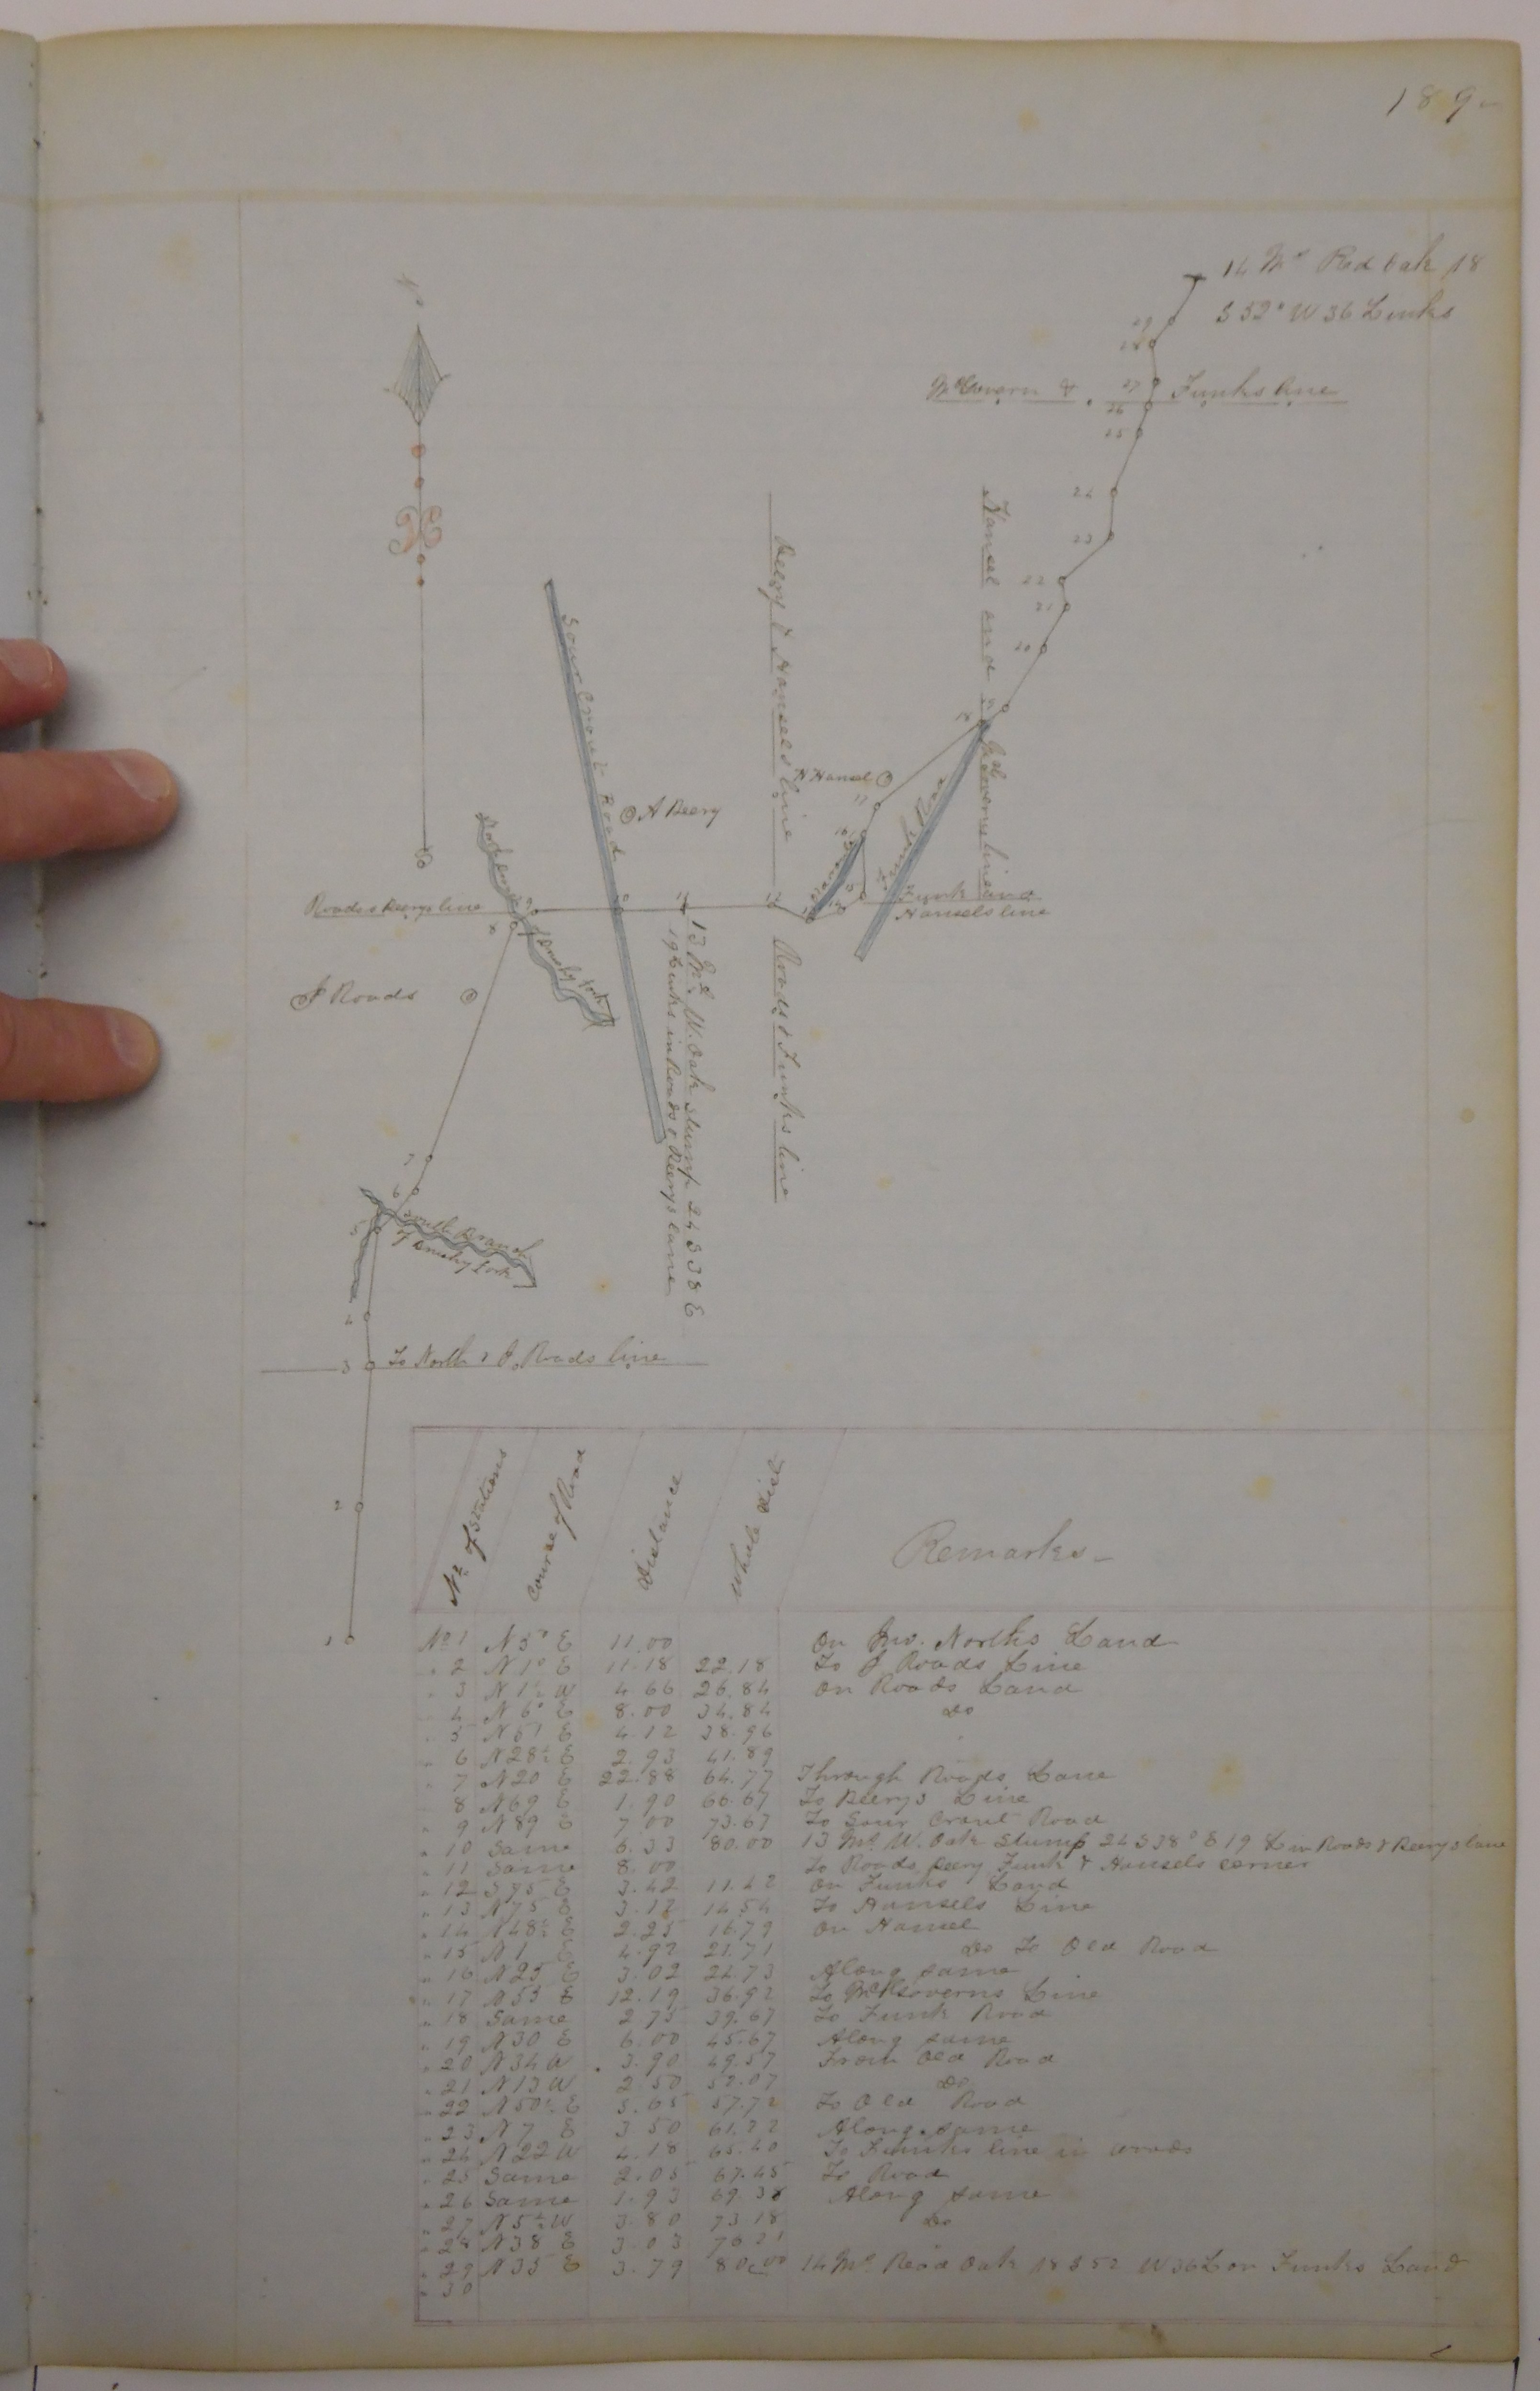 189
N
14 Mr Red Oak 18
S 52° W 36 Links
29
28
McGovern &
27
26
Funks line
25
24
23
22
21
20
19
18
Hansel and McGoverns line
Beery & Hansels line
Sour Crout Road
H Hansel
17
16
Funk Road
A Beery
Roads & Beerys line
9
8
11
Funk and
Hansels line
J Roads
13 Ml W. Oak Stump 24 S 38 E
19 Links in Roads & Beerys Lane
Roads & Funks line
7
6
5
South Branch
of Brushy fork
4
3 To North & J. Roads line
2
1
No of Stations
Course of Road
Distance
Whole Dist
Remarks
No 1 N 5° E 11.00 On Jno. Norths Land
" 2 N 1° E 11.18 22.18 To J Roads Line
" 3 N 1½ W 4.66 26.84 On Roads Land
" 4 N 6° E 8.00 34.84 Do
" 5 N 51 E 4.12 38.96
" 6 N 28½ E 2.93 41.89
" 7 N 20 E 22.88 64.77 Through Roads Lane
8 N 69 E 1.90 66.67 To Beerys Line
" 9 N 89 E 7.00 73.67 To Sour Crout Road
" 10 Same 6.33 80.00 13 Ml W. Oak Stump 24 S 38° E 19 L in Roads & Beerys lane
" 11 Same 8.00 To Roads Beery Funk & Hansels corner
" 12 S 75 E 3.42 11.42 On Funks Land
" 13 N 75 E 3.12 14.54 To Hansels Line
" 14 N 48½ E 2.25 16.79 On Hansel
" 15 N 1 E 4.92 21.71 Do To Old Road
" 16 N 25 E 3.02 24.73 Along same
" 17 N 55 E 12.19 36.92 To McGoverns Line
" 18 Same 2.75 39.67 To Funk Road
" 19 N 30 E 6.00 45.67 Along same
" 20 N 34 W 3.90 49.57 From Old Road
" 21 N 13 W 2.50 52.07 Do
" 22 N 50½ E 5.65 57.72 To Old Road
" 23 N 7 E 3.50 61.22 Along same
" 24 N 22 W 4.18 65.40 To Funks line in woods
" 25 Same 2.05 67.45 To Road
" 26 Same 1.93 69.38 Along same
" 27 N 5½ W 3.80 73.18 Do
" 28 N 38 E 3.03 76.21
" 29 N 35 E 3.79 80.00 14 Ml Read Oak 18 S 52 W 36 L on Funks Land
" 30